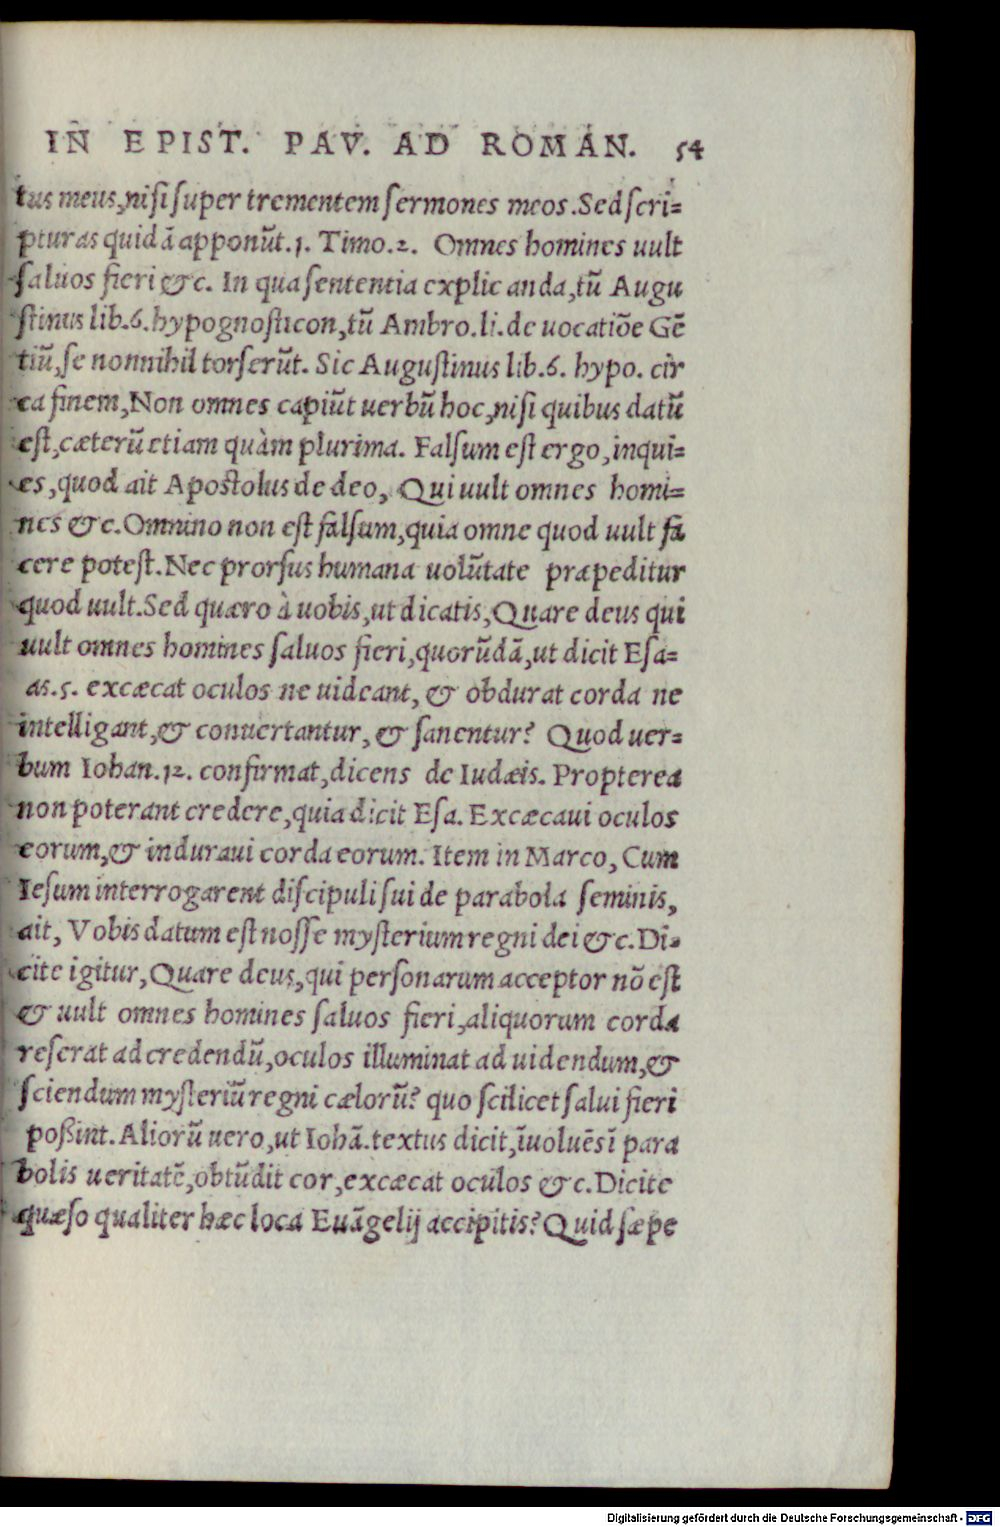 IN EPIST. PAV. AD ROMAN. 54
tus meus, nisi super trementem sermones meos. Sed scri=
pturas quidã apponũt. 1. Timo. 2. Omnes homines uult
saluos fieri &c. In qua sententia explicanda, tũ Augu
stinus lib. 6. hypognosticon, tũ Ambro. li. de uocatiõe Gẽ
tiũ, se nonnihil torserũt. Sic Augustinus lib. 6. hypo. cir
ca finem, Non omnes capiũt uerbũ hoc, nisi quibus datũ
est, cæterũ etiam quàm plurima. Falsum est ergo, inqui=
es, quod ait Apostolus de deo, Qui uult omnes homi=
nes &c. Omnino non est falsum, quia omne quod uult fa
cere potest. Nec prorsus humana uolũtate præpeditur
quod uult. Sed quæro à uobis, ut dicatis, Quare deus qui
uult omnes homines saluos fieri, quorũdã, ut dicit Esa=
as. 5. excæcat oculos ne uideant, & obdurat corda ne
intelligant, & conuertantur, & sanentur? Quod uer=
bum Iohan. 12. confirmat, dicens de Iudæis. Propterea
non poterant credere, quia dicit Esa. Excæcaui oculos
eorum, & induraui corda eorum. Item in Marco, Cum
Iesum interrogarent discipuli sui de parabola seminis,
ait, Vobis datum est nosse mysterium regni dei &c. Di=
cite igitur, Quare deus, qui personarum acceptor nõ est
& uult omnes homines saluos fieri, aliquorum corda
reserat ad credendũ, oculos illuminat ad uidendum, &
sciendum mysteriũ regni cælorũ? quo scilicet salui fieri
poßint. Aliorũ uero, ut Iohã. textus dicit, ĩuoluẽs ĩ para
bolis ueritatẽ, obtũdit cor, excæcat oculos &c. Dicite
quæso qualiter hæc loca Euãgelij accipitis? Quid sæpe
Digitalisierung gefördert durch die Deutsche Forschungsgemeinschaft - DFG